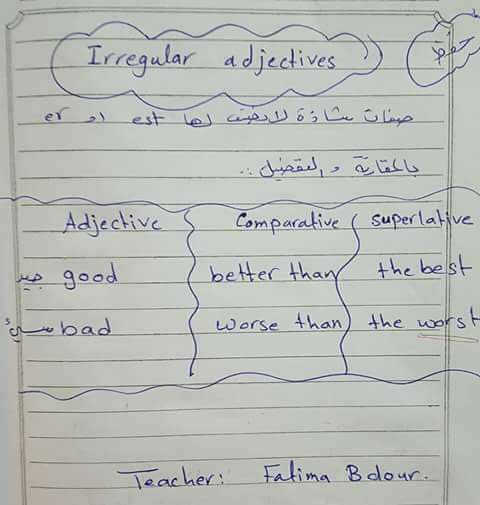 Irregular adjectives
حفظ
صفات شاذة لا نضيف لها est او er
بالمقارنة والتفضيل :.
Adjective Comparative superlative
جيد good better than the best
سيء bad worse than the worst
Teacher: Fatima Bdour.